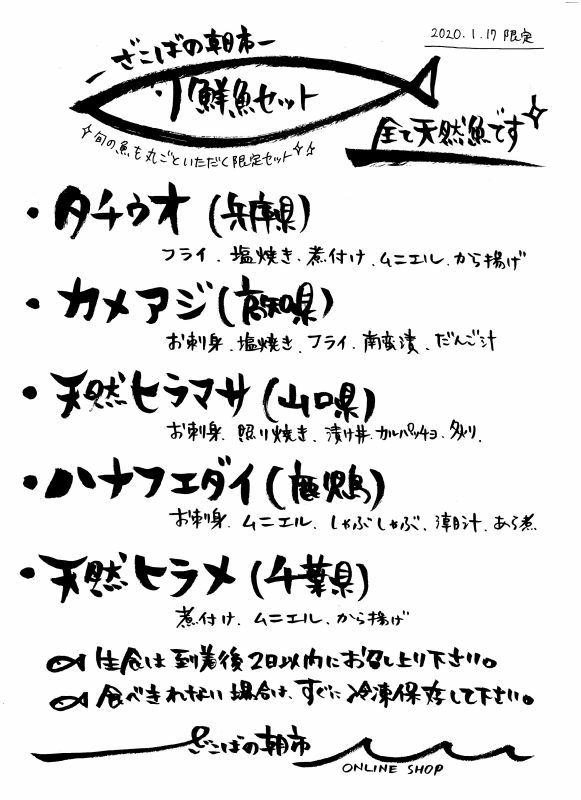 2020.1.17 限定
ざこばの朝市
鮮魚セット
旬の魚を丸ごといただく限定セット
全て天然魚です
・タチウオ(兵庫県)
フライ、塩焼き、煮付け、ムニエル、から揚げ
・カメアジ(高知県)
お刺身、塩焼き、フライ、南蛮漬、だんご汁
・天然ヒラマサ(山口県)
お刺身、照り焼き、漬け丼、カルパッチョ、炙り、
・ハナフエダイ(鹿児島)
お刺身、ムニエル、しゃぶしゃぶ、潮汁、あら煮
・天然ヒラメ(千葉県)
煮付け、ムニエル、から揚げ
生食は到着後2日以内にお召し上り下さい。
食べきれない場合は、すぐに冷凍保存して下さい。
ざこばの朝市
ONLINE SHOP